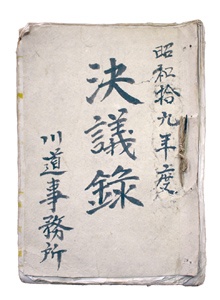 昭和拾九年度
決議錄
川道事務所